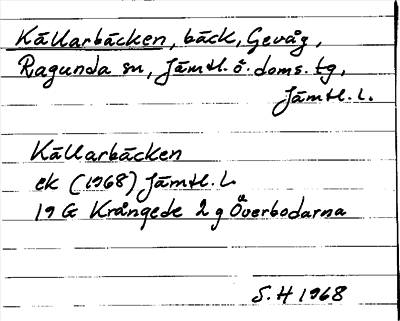 Källarbäcken, bäck, Gevåg,
Ragunda sn, Jämtl. ö. doms. tg,
Jämtl. l.
Källarbäcken
ek (1968) Jämtl. L
19 G Krångede 2 g Överbodarna
S. H 1968